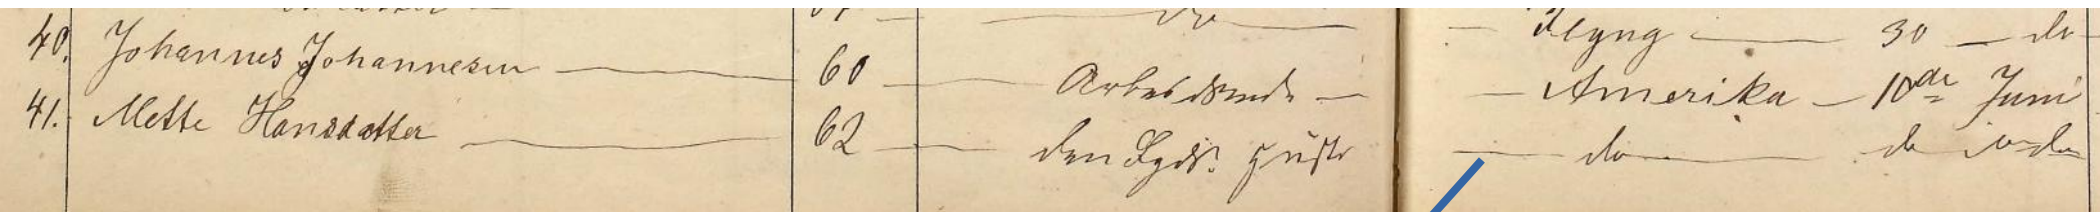 30 — do
40. Johannes Johannesen — 60 — Arbeidsmd. — — Amerika — 10de Juni
41. Mette Hansdatter — 62 — den Fgds. Hustr — do — do